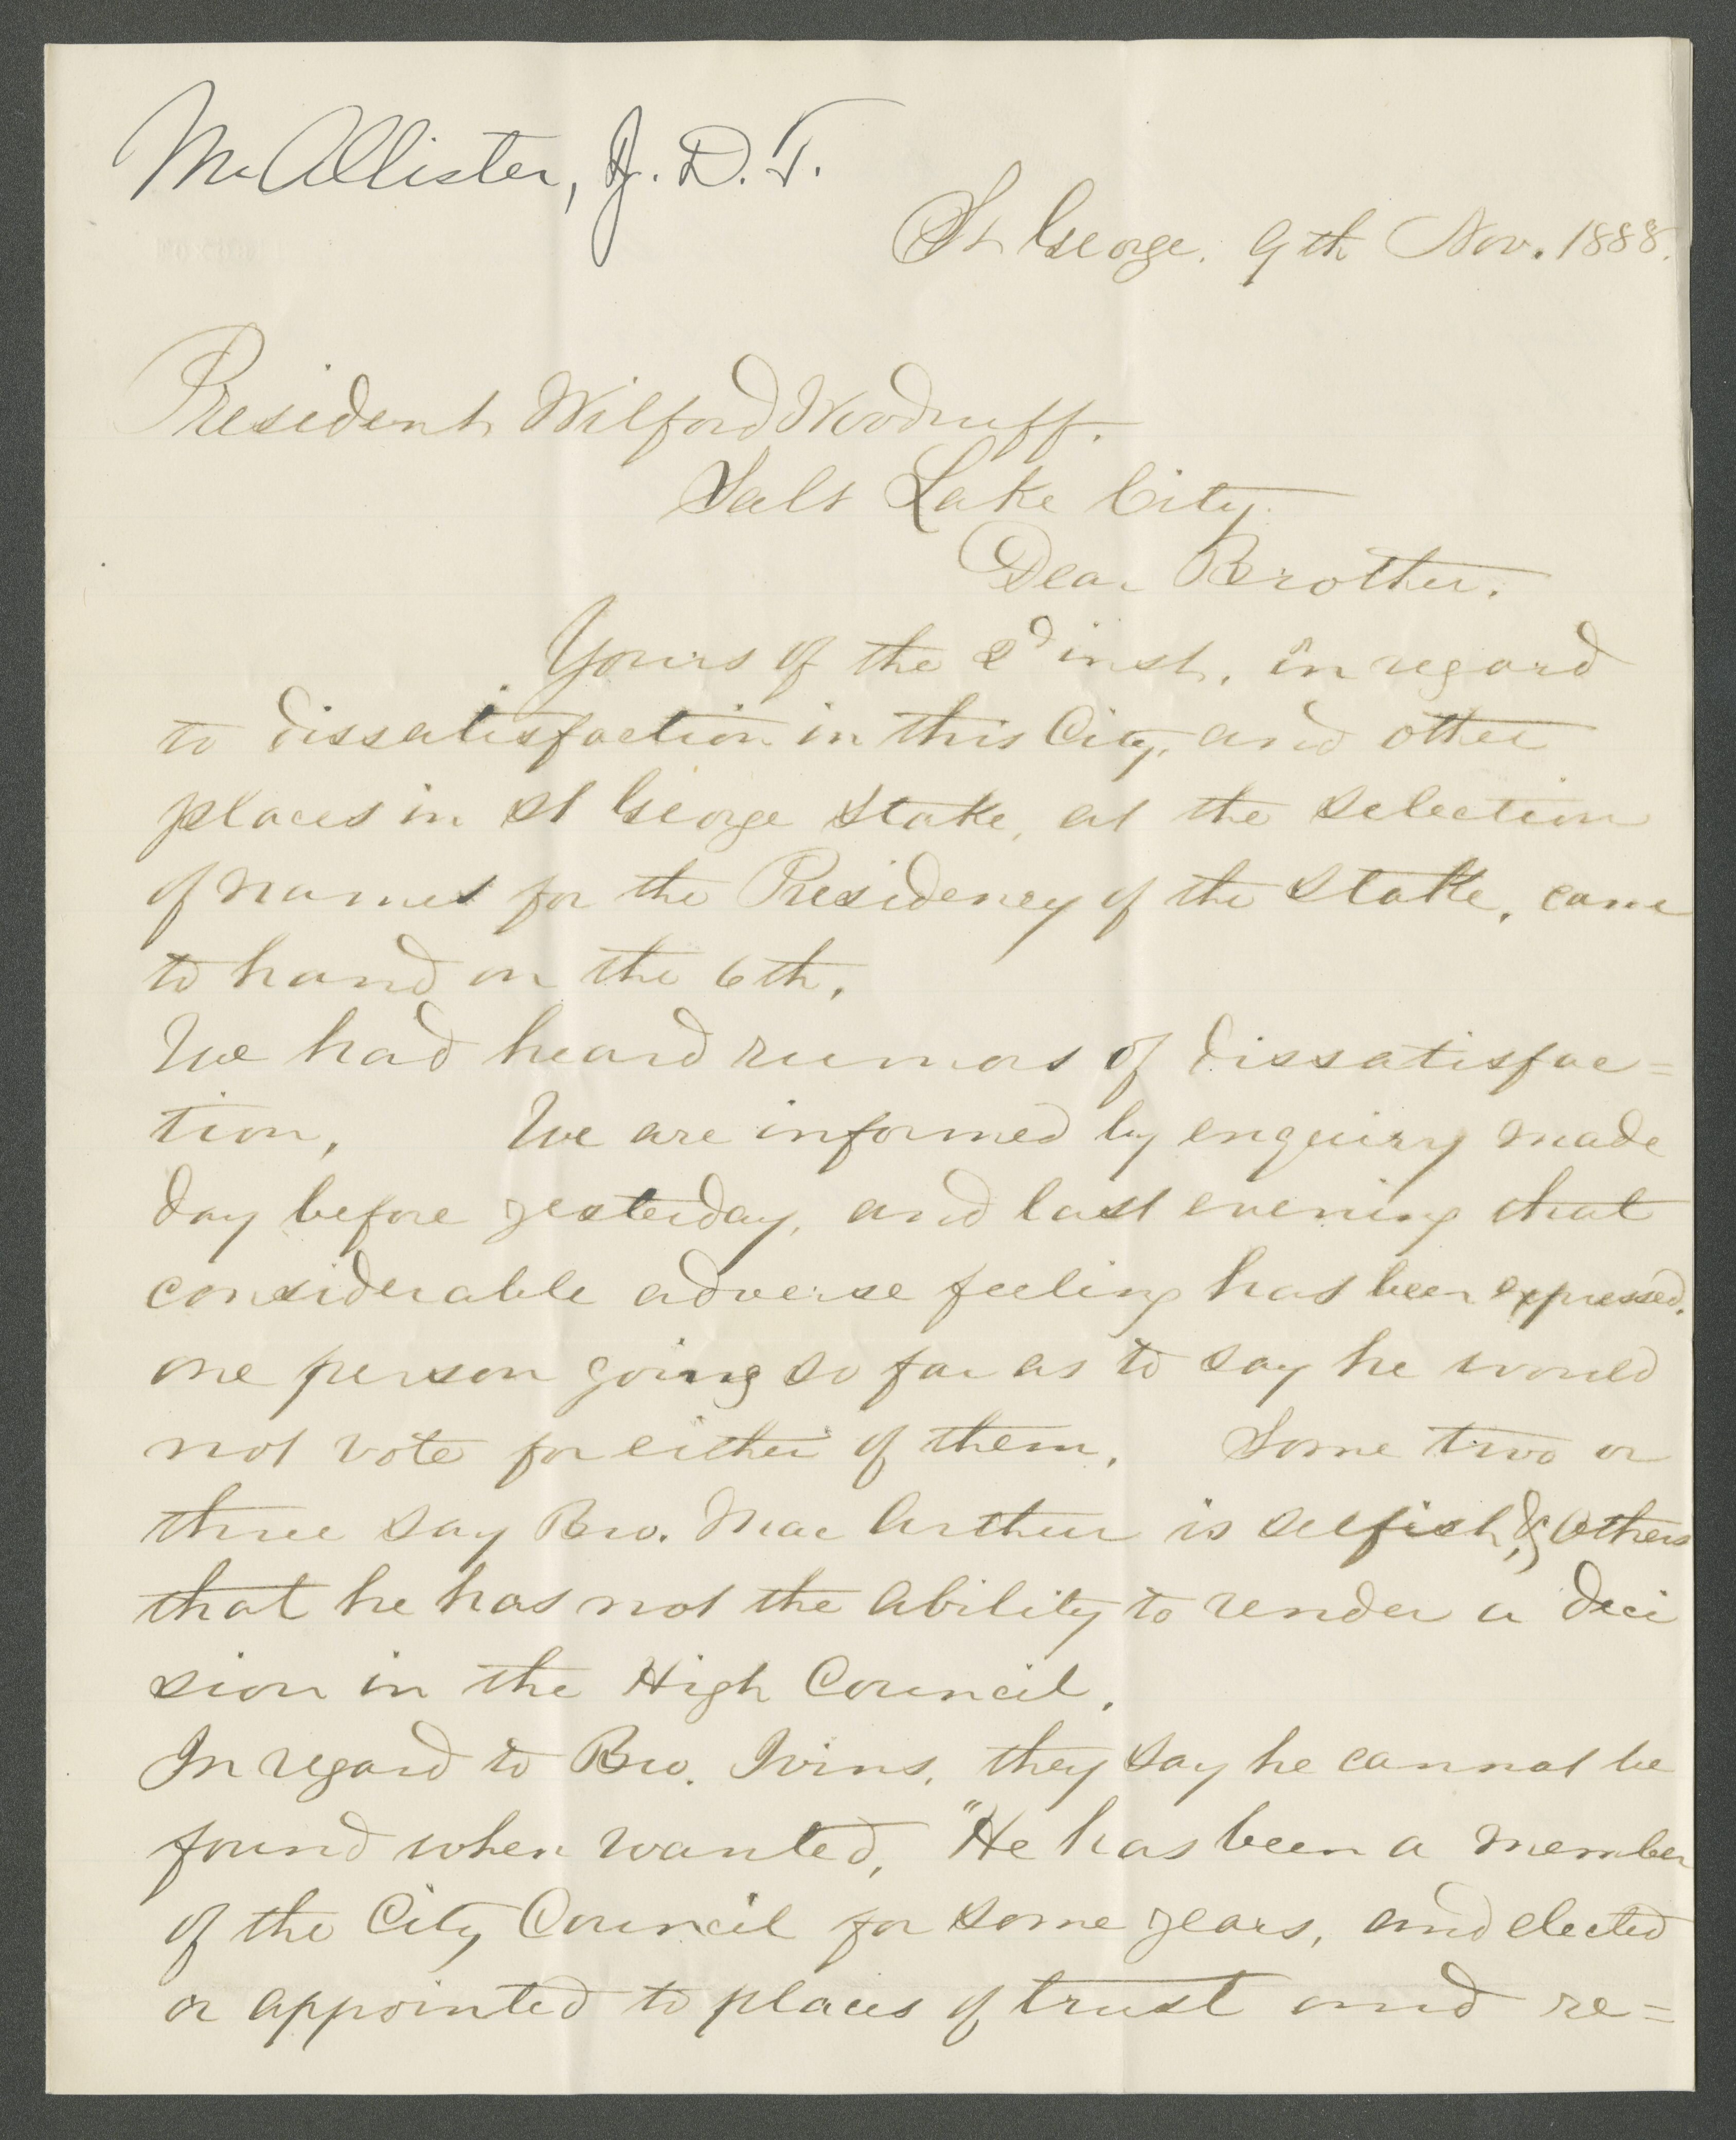 McAllister, J. D. T.
St George. 9th Nov. 1888.
President Wilford Woodruff.
Salt Lake City.
Dear Brother.
Yours of the 2d inst. in regard
to dissatisfaction in this City, and other
places in St George Stake, at the selection
of names for the Presidency of the Stake, came
to hand on the 6th.
We had heard rumors of dissatisfac=
tion, We are informed by enquiry made
day before yesterday, and last evening that
considerable adverse feeling has been expressed.
one person going so far as to say he would
not vote for either of them. Some two or
three say Bro. Mac Arthur is selfish, & others
that he has not the ability to render a deci
sion in the High Council.
In regard to Bro. Ivins, they say he cannot be
found when wanted, "He has been a member
of the City Council for some years, and elected
or appointed to places of trust and re=